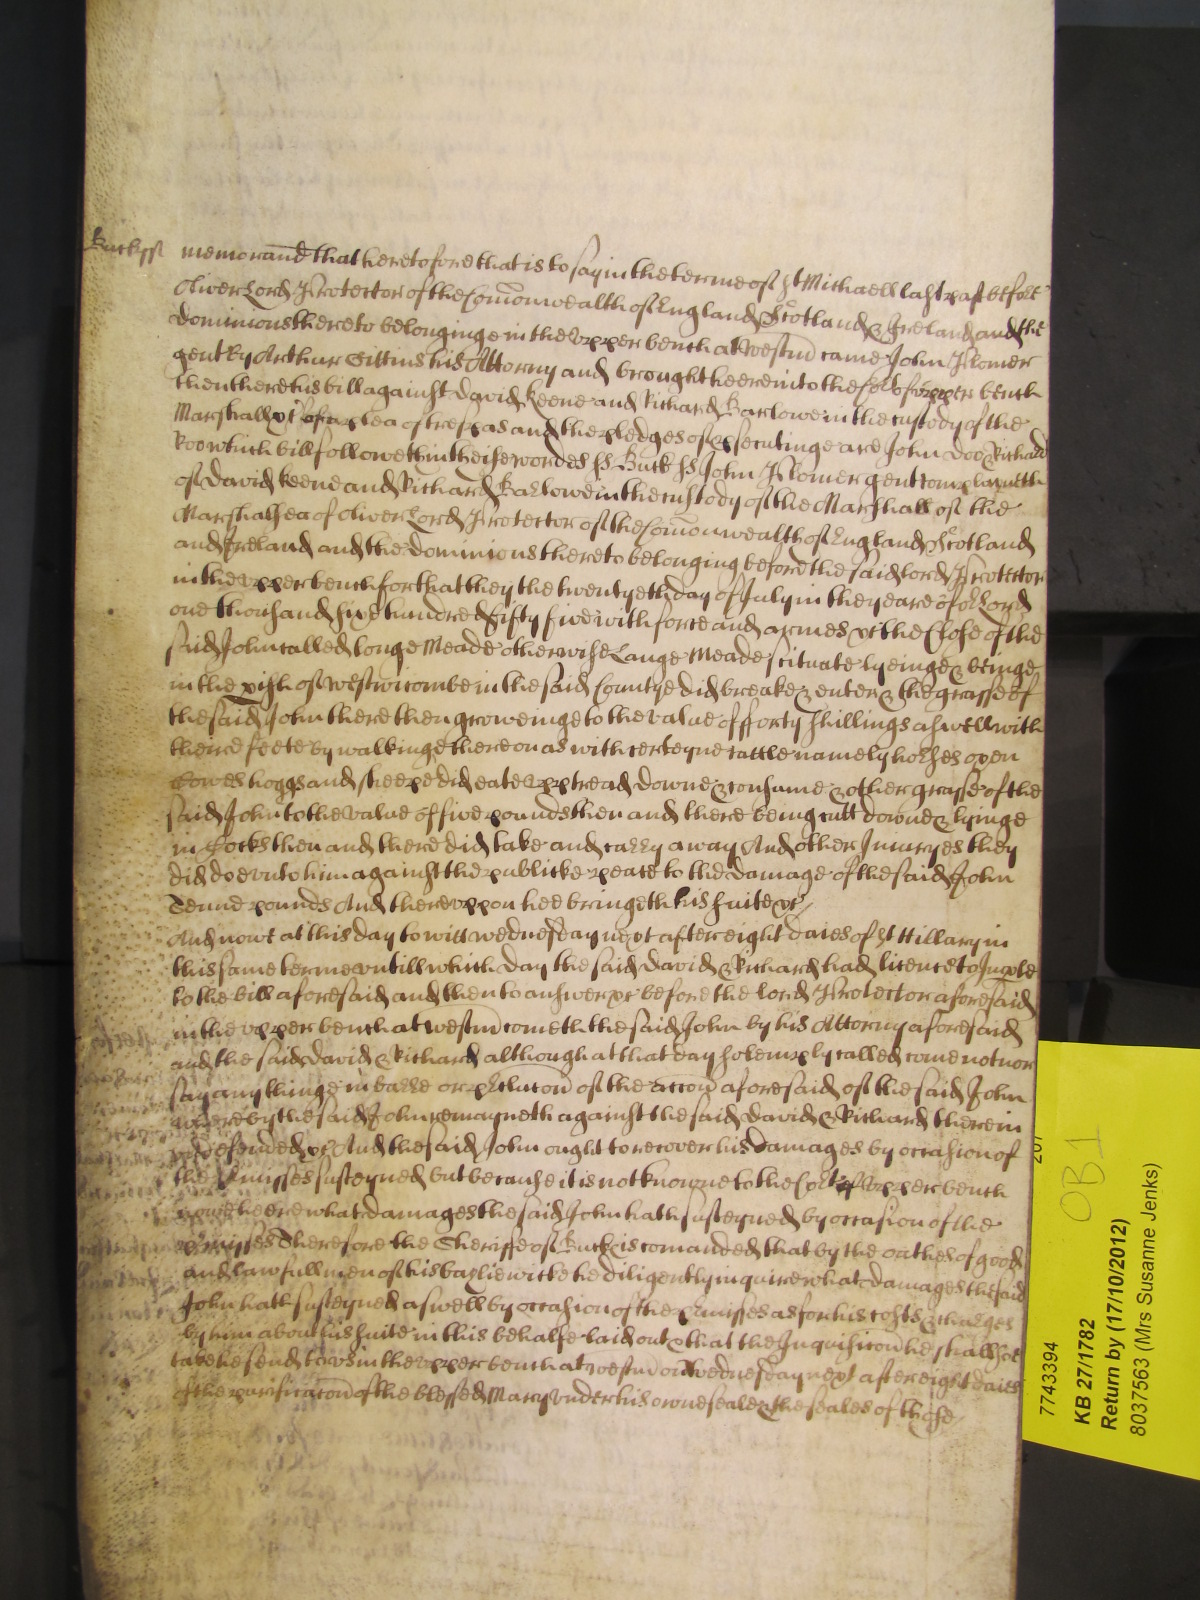 Buck ss memorand that heretofore that is to say in the terme of St Michaell last past before
Oliver Lord Protector of the Comonwealth of England Scotland & Ireland and the
dominions thereto belonginge in the upper bench at Westm came John Plomer
gent by Arthur Gittins his Attorny and brought heere into the Cort of upper bench
then there his bill against david Keene and Richard Barlowe in the custody of the
Marshall &c of a plea of trespas and the pledges of psecutinge are John doo & Richard
Roo which bill followeth in theise wordes ss Buck ss John Plomer gent complayneth
of david Keene and Richard Barlowe in the custody of the Marshall of the
Marshalsea of Oliver Lord Protector of the Comonwealth of England Scotland
and Ireland and the dominions thereto belonging before the said Lord Protector
in the upper bench for that they the twentyeth day of July in the yeare of or Lord
one thousand six hundred fifty five with force and armes &c the Close of the
said John called Longe Meade otherwise Lange Meade scituate lyeinge & beinge
in the pish of Westwicombe in the said Countye did breake & enter & the grasse of
the said John there then groweinge to the value of fforty shillings aswell with
theire feete by walkinge thereon as with certeyne cattle namely horses oxen
Cowes hoggs and sheepe did eate upp tread downe & consume & other grasse of the
said John to the value of five pounds then and there being cutt downe & lyinge
in Cocks then and there did take and carry away And other Iniuryes they
did doe unto him against the publicke peace to the damage of the said John
Tenne pounds And thereuppon hee bringeth his suite &c
And nowe at this day to witt wednesday next after eight daies of St Hillary in
this same terme untill which day the said david & Richard had licence to Imple
to the bill aforesaid and then to answer &c before the Lord Protector aforesaid
in the upper bench at westm cometh the said John by his Attorny aforesaid
and the said david & Richard although at that day solemply called come not nor
say any thinge in barre or pclucon of the accon aforesaid of the said John
whereby the said John remayneth against the said david & Richard therein
undefended &c And the said John ought to recover his damages by occasion of
the pmisses susteyned but because it is not knowne to the Cort of upper bench
nowe heere what damages the said John hath susteyned by occasion of the
pmisses Therefore the Sheriffe of Buck is comanded that by the oathes of good
and lawfull men of his bayliewicke he diligently inquire what damages the said
John hath susteyned aswell by occasion of the pmisses as for his costs & charges
by him about his suite in this behalfe laid out & that the Inquisicon he shall soe
take he send to us in the upper bench at westm on Wednesday next after eight daies
of the purificacon of the blessed Mary under his owne seale & the seales of those
OB1
7743394
KB 27/1782
Return by (17/10/2012)
8037563 (Mrs Susanne Jenks)